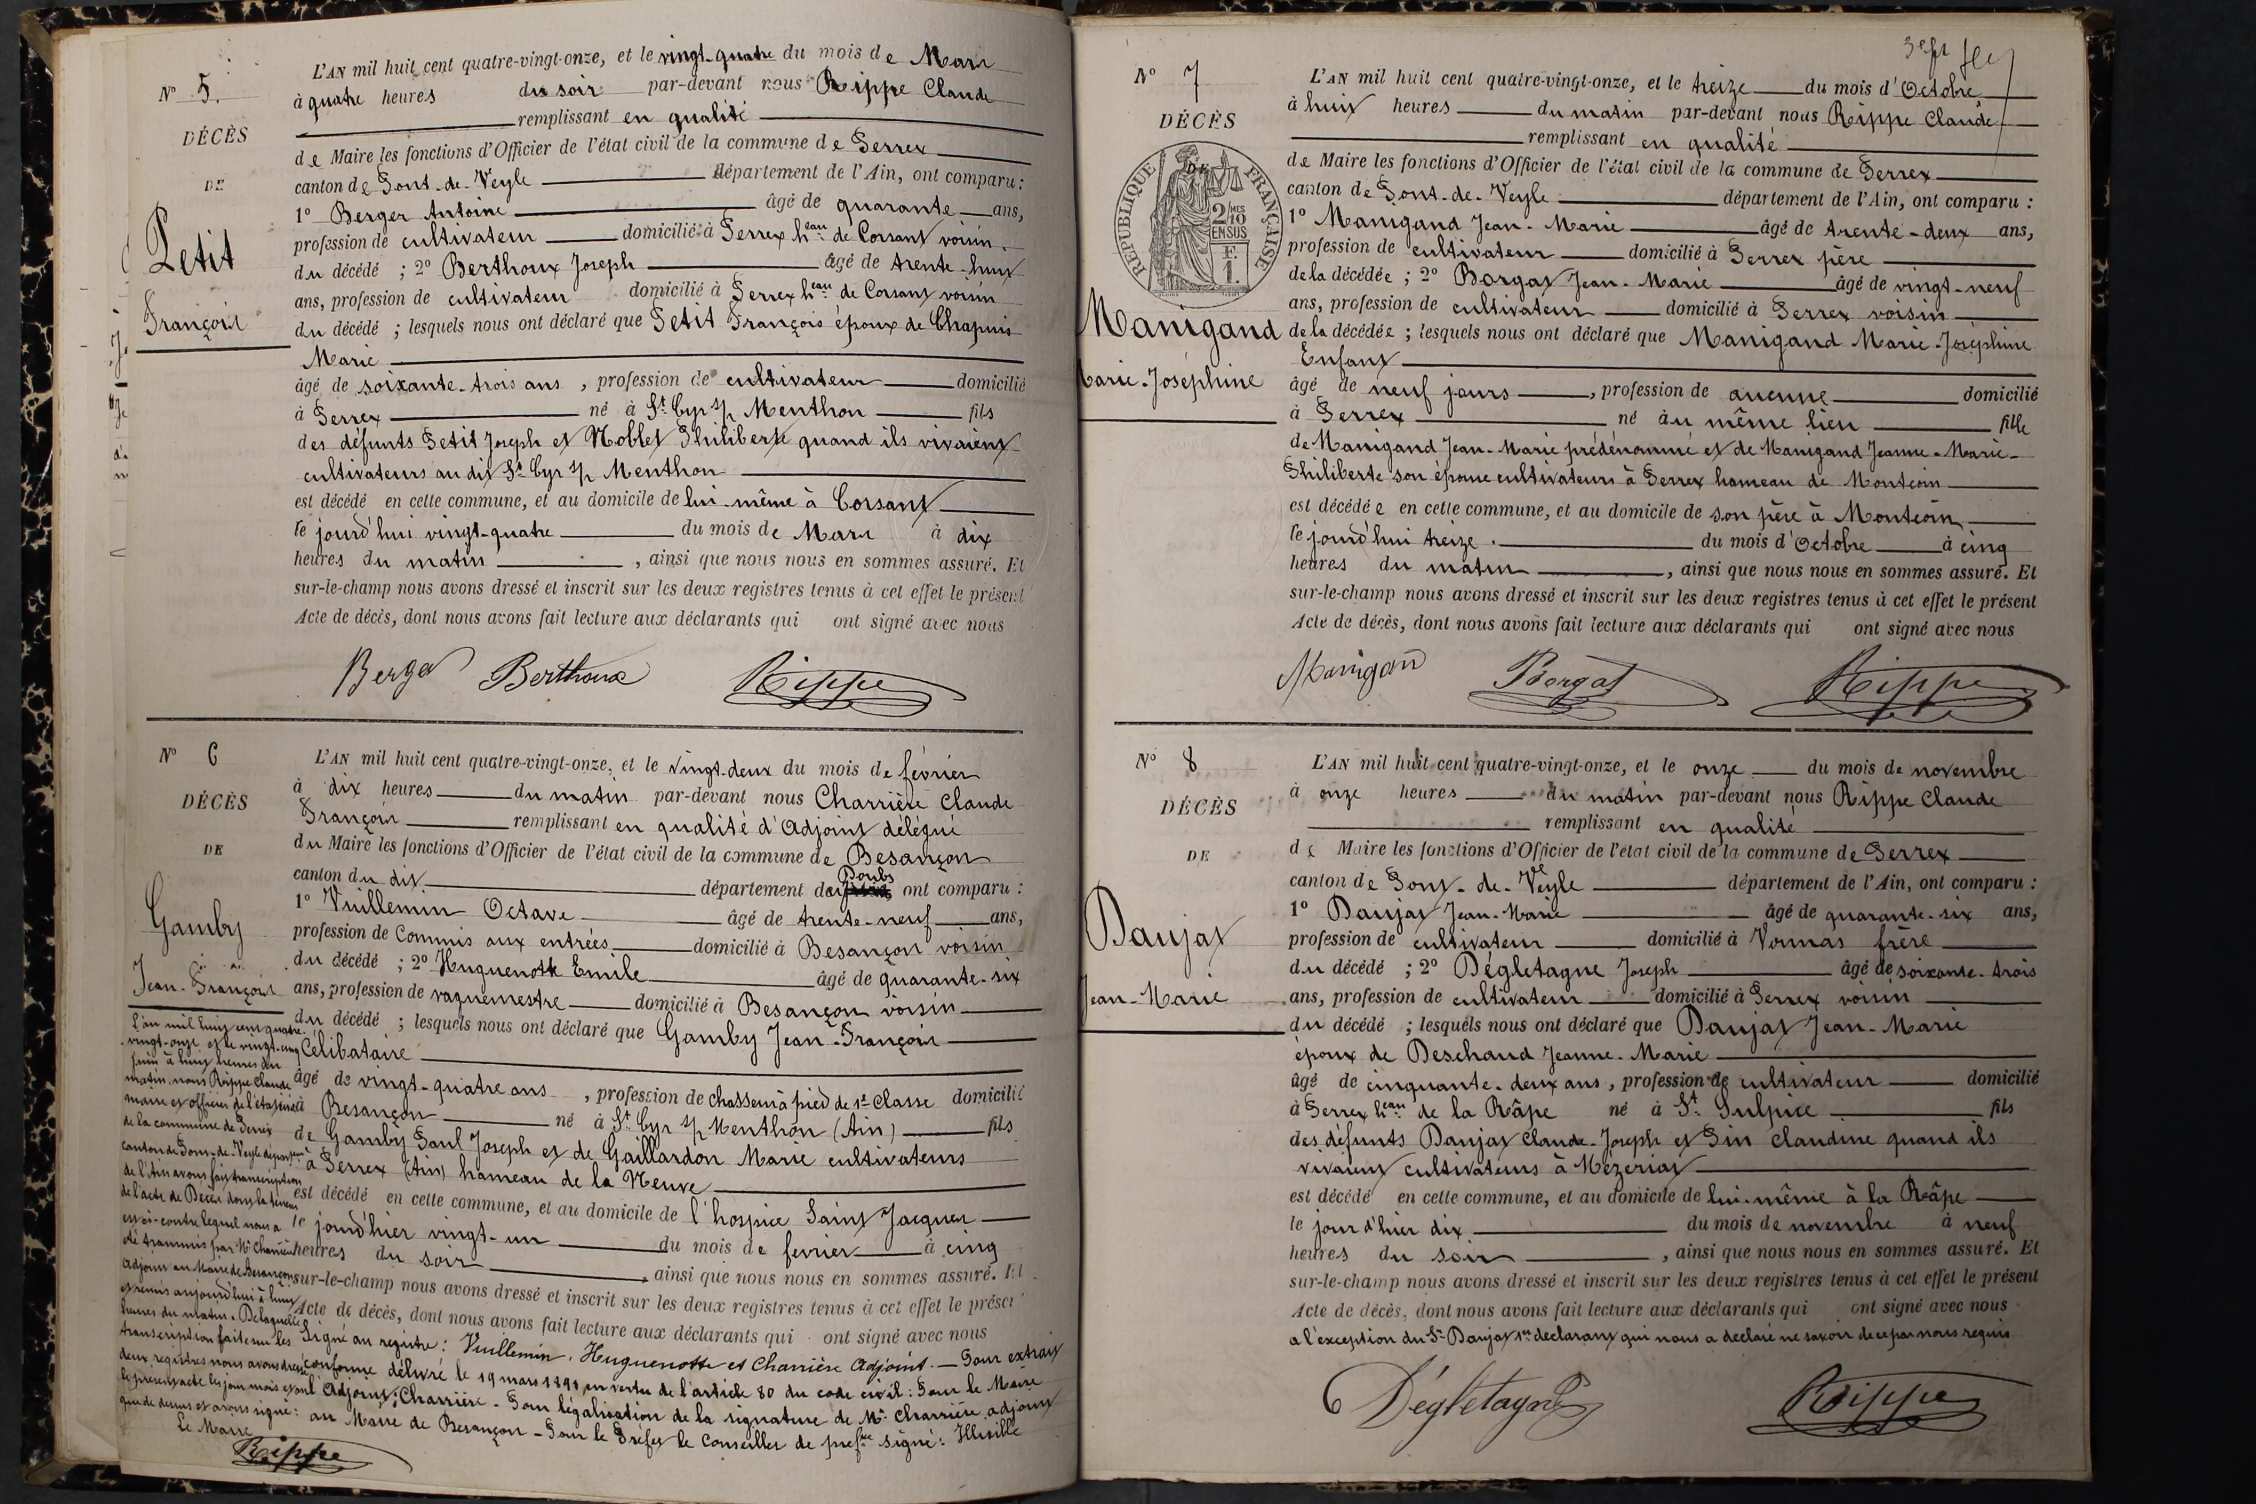 N° 5.
DÉCÈS
DE
Petit
François
L'AN mil huit cent quatre-vingt-onze, et le vingt-quatre du mois de Mars
à quatre heures du soir par-devant nous Rippe Claude
remplissant en qualité
de Maire les fonctions d'Officier de l'état civil de la commune de Perrex
canton de Pont-de-Veyle département de l'Ain, ont comparu :
1° Berger Antoine âgé de quarante ans,
profession de cultivateur domicilié à Perrex heau de Corsant voisin
du décédé ; 2° Berthoux Joseph âgé de trente-huit
ans, profession de cultivateur domicilié à Perrex heau de Corsant voisin
du décédé ; lesquels nous ont déclaré que Petit François époux de Chapuis
Marie
âgé de soixante-trois ans, profession de cultivateur domicilié
à Perrex né à St Cyr s/ Menthon fils
des défunts Petit Joseph et Noblet Philiberte quand ils vivaient
cultivateurs au dit St Cyr s/ Menthon
est décédé en cette commune, et au domicile de lui-même à Corsant
le jourd'hui vingt-quatre du mois de Mars à dix
heures du matin, ainsi que nous nous en sommes assuré. Et
sur-le-champ nous avons dressé et inscrit sur les deux registres tenus à cet effet le présent
Acte de décès, dont nous avons fait lecture aux déclarants qui ont signé avec nous
Berger Berthoux Rippe
N° 6
DÉCÈS
DE
Gamby
Jean-François
L'AN mil huit cent quatre-vingt-onze, et le vingt-deux du mois de février
à dix heures du matin par-devant nous Charrière Claude
François remplissant en qualité d'Adjoint délégué
du Maire les fonctions d'Officier de l'état civil de la commune de Besançon
canton du dit département du Doubs ont comparu :
1° Vuillemin Octave âgé de trente-neuf ans,
profession de Commis aux entrées domicilié à Besançon voisin
du décédé ; 2° Huguenotte Emile âgé de quarante-six
ans, profession de vaguemestre domicilié à Besançon voisin
du décédé ; lesquels nous ont déclaré que Gamby Jean-François
Célibataire
âgé de vingt-quatre ans, profession de chasseur à pied de 1e Classe domicilié
à Besançon né à St Cyr s/ Menthon (Ain) fils
de Gamby Paul Joseph et de Gaillardon Marie cultivateurs
à Perrex (Ain) hameau de la Neuve
est décédé en cette commune, et au domicile de l'hospice Saint Jacques
le jourd'hier vingt-un du mois de février à cinq
heures du soir, ainsi que nous nous en sommes assuré. Et
sur-le-champ nous avons dressé et inscrit sur les deux registres tenus à cet effet le présent
Acte de décès, dont nous avons fait lecture aux déclarants qui ont signé avec nous
Signé au registre : Vuillemin, Huguenotte et Charrière Adjoint. — Pour extrait
conforme délivré le 19 mars 1891 en vertu de l'article 80 du code civil : Pour le Maire
l'Adjoint : Charrière - Pour légalisation de la signature de Mr Charrière adjoint
au Maire de Besançon - Pour le Préfet le Conseiller de préfre signé : Illisible
L'an mil huit cent quatre-
vingt-onze et le vingt-cinq
juin à huit heures du
matin, nous Rippe Claude
maire et officier de l'état civil
de la commune de Perrex
canton de Pont-de-Veyle département
de l'Ain avons fait transcription
de l'acte de Décès dont la teneur
est ci-contre lequel nous a
été transmis par Mr Charrière
Adjoint au Maire de Besançon
et remis aujourd'hui à huit
heures du matin. De laquelle
transcription faite sur les
deux registres nous avons dressé
le présent acte les jour mois et an
que de dessus et avons signé :
Le Maire
Rippe
3e ft
N° 7
DÉCÈS
DE
RÉPUBLIQUE FRANÇAISE
2/10MES
EN SUS
F.
1.
Manigand
Marie-Joséphine
L'AN mil huit cent quatre-vingt-onze, et le treize du mois d'Octobre
à huit heures du matin par-devant nous Rippe Claude
remplissant en qualité
de Maire les fonctions d'Officier de l'état civil de la commune de Perrex
canton de Pont-de-Veyle département de l'Ain, ont comparu :
1° Manigand Jean-Marie âgé de trente-deux ans,
profession de cultivateur domicilié à Perrex père
de la décédée ; 2° Borgat Jean-Marie âgé de vingt-neuf
ans, profession de cultivateur domicilié à Perrex voisin
de la décédée ; lesquels nous ont déclaré que Manigand Marie-Joséphine
Enfant
âgé de neuf jours, profession de aucune domicilié
à Perrex né au même lieu fille
de Manigand Jean-Marie prédénommé et de Manigand Jeanne-Marie-
Philiberte son épouse cultivateurs à Perrex hameau de Montcoin
est décédée en cette commune, et au domicile de son père à Montcoin
le jourd'hui treize du mois d'Octobre à cinq
heures du matin, ainsi que nous nous en sommes assuré. Et
sur-le-champ nous avons dressé et inscrit sur les deux registres tenus à cet effet le présent
Acte de décès, dont nous avons fait lecture aux déclarants qui ont signé avec nous
Manigan Borgat Rippe
N° 8
DÉCÈS
DE
Daujat
Jean-Marie
L'AN mil huit cent quatre-vingt-onze, et le onze du mois de novembre
à onze heures du matin par-devant nous Rippe Claude
remplissant en qualité
de Maire les fonctions d'Officier de l'état civil de la commune de Perrex
canton de Pont-de-Veyle département de l'Ain, ont comparu :
1° Daujat Jean-Marie âgé de quarante-six ans,
profession de cultivateur domicilié à Vonnas frère
du décédé ; 2° Dégletagne Joseph âgé de soixante-trois
ans, profession de cultivateur domicilié à Perrex voisin
du décédé ; lesquels nous ont déclaré que Daujat Jean-Marie
époux de Deschaud Jeanne-Marie
âgé de cinquante-deux ans, profession de cultivateur domicilié
à Perrex heau de la Râpe né à St Sulpice fils
des défunts Daujat Claude-Joseph et Pin Claudine quand ils
vivaient cultivateurs à Mézeriat
est décédé en cette commune, et au domicile de lui-même à la Râpe
le jour d'hier dix du mois de novembre à neuf
heures du soir, ainsi que nous nous en sommes assuré. Et
sur-le-champ nous avons dressé et inscrit sur les deux registres tenus à cet effet le présent
Acte de décès, dont nous avons fait lecture aux déclarants qui ont signé avec nous
a l'exception du Sr Daujat 1er déclarant qui nous a déclaré ne savoir de ce par nous requis
Dégletagne Rippe